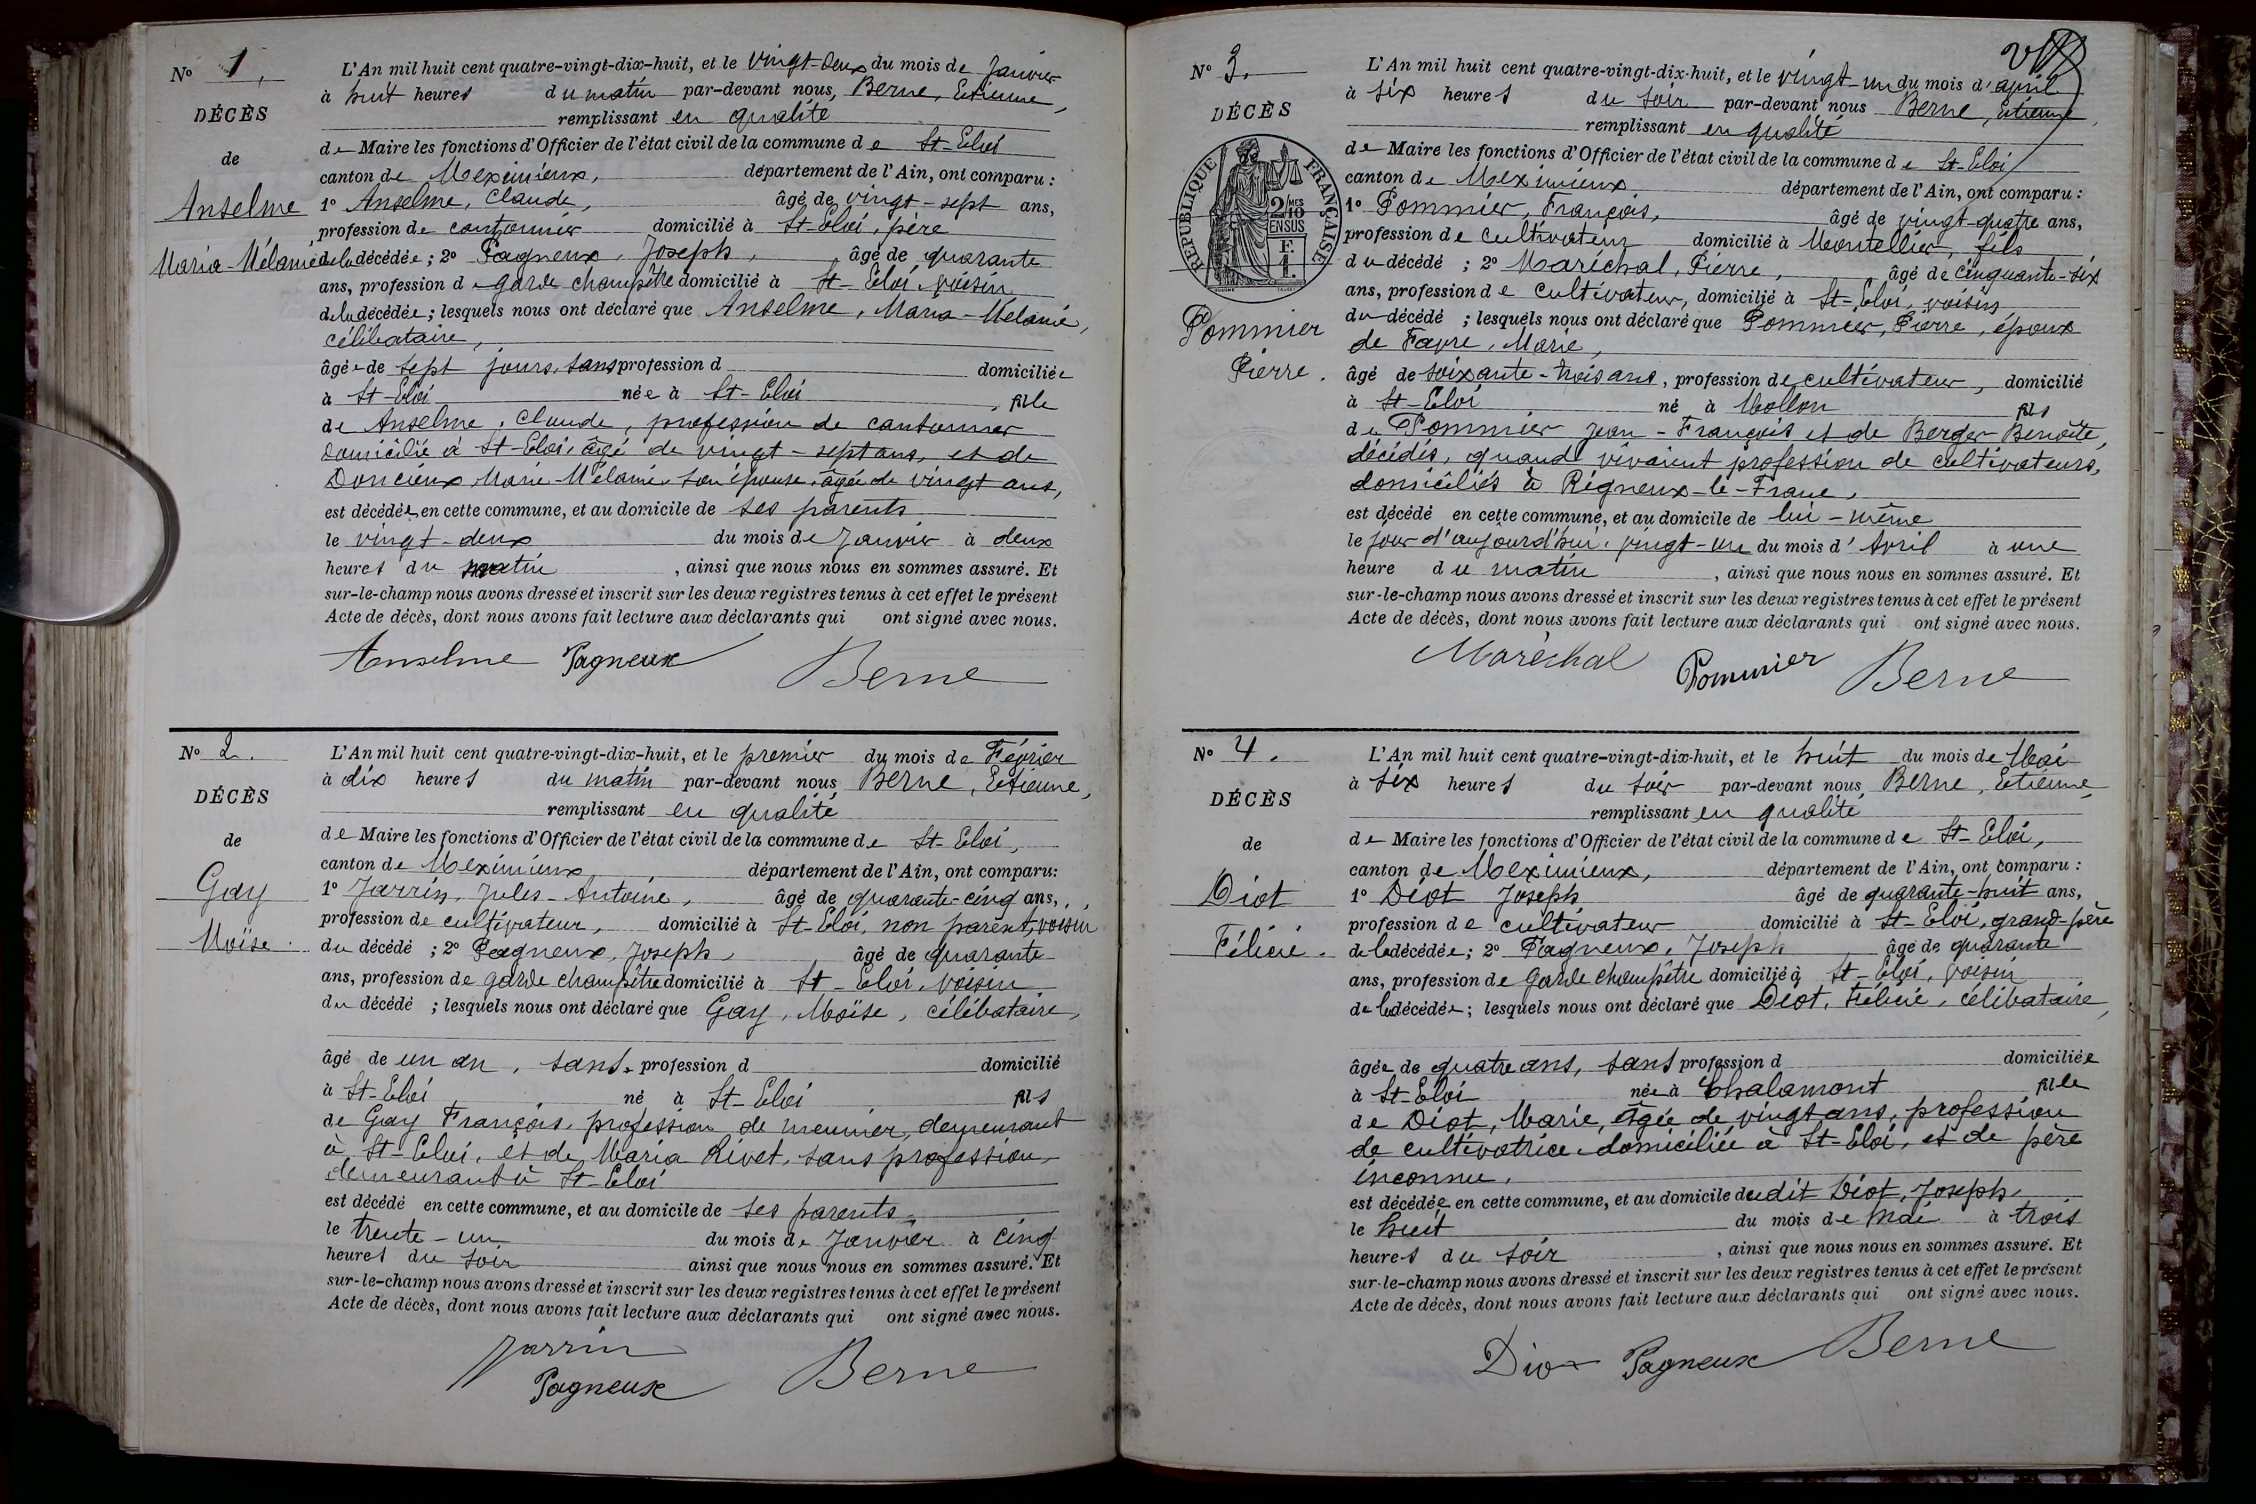 N° 1.
DÉCÈS
de
Anselme
Maria-Mélanie
L'An mil huit cent quatre-vingt-dix-huit, et le vingt-deux du mois de Janvier
à huit heures du matin par-devant nous, Berne, Etienne,
remplissant en qualité
de Maire les fonctions d'Officier de l'état civil de la commune de St-Eloi
canton de Meximieux, département de l'Ain, ont comparu :
1° Anselme, Claude, âgé de vingt-sept ans,
profession de cantonnier domicilié à St-Eloi, père
de la décédée ; 2° Pagneux, Joseph, âgé de quarante
ans, profession de garde champêtre domicilié à St-Eloi, voisin
de la décédée ; lesquels nous ont déclaré que Anselme, Maria-Mélanie,
célibataire,
âgée de sept jours, sans profession d domiciliée
à St-Eloi née à St-Eloi, fille
de Anselme, Claude, profession de cantonnier
domicilié à St-Eloi, âgé de vingt-sept ans, et de
Doncieux Marie-Mélanie son épouse, âgée de vingt ans,
est décédée en cette commune, et au domicile de ses parents
le vingt-deux du mois de Janvier à deux
heures du matin, ainsi que nous nous en sommes assuré. Et
sur-le-champ nous avons dressé et inscrit sur les deux registres tenus à cet effet le présent
Acte de décès, dont nous avons fait lecture aux déclarants qui ont signé avec nous.
Anselme Pagneux Berne
N° 2.
DÉCÈS
de
Gay
Moïse.
L'An mil huit cent quatre-vingt-dix-huit, et le premier du mois de Février
à dix heures du matin par-devant nous Berne, Etienne,
remplissant en qualité
de Maire les fonctions d'Officier de l'état civil de la commune de St-Eloi,
canton de Meximieux département de l'Ain, ont comparu :
1° Jarrin, Jules-Antoine, âgé de quarante-cinq ans,
profession de cultivateur, domicilié à St-Eloi, non parent, voisin
du décédé ; 2° Pagneux, Joseph, âgé de quarante
ans, profession de garde champêtre domicilié à St-Eloi, voisin
du décédé ; lesquels nous ont déclaré que Gay, Moïse, célibataire,
âgé de un an, sans profession d domicilié
à St-Eloi né à St-Eloi fils
de Gay François, profession de meunier, demeurant
à St-Eloi, et de Maria Rivet, sans profession,
demeurant à St-Eloi
est décédé en cette commune, et au domicile de ses parents,
le trente-un du mois de Janvier à cinq
heures du soir ainsi que nous nous en sommes assuré. Et
sur-le-champ nous avons dressé et inscrit sur les deux registres tenus à cet effet le présent
Acte de décès, dont nous avons fait lecture aux déclarants qui ont signé avec nous.
Jarrin
Pagneux Berne
N° 3.
DÉCÈS
RÉPUBLIQUE FRANÇAISE
2/10 MES
EN SUS
F
1.
Pommier
Pierre.
L'An mil huit cent quatre-vingt-dix-huit, et le vingt-un du mois d'avril
à six heures du soir par-devant nous Berne, Etienne,
remplissant en qualité
de Maire les fonctions d'Officier de l'état civil de la commune de St-Eloi
canton de Meximieux département de l'Ain, ont comparu :
1° Pommier, François, âgé de vingt-quatre ans,
profession de cultivateur domicilié à Montellier, fils
du décédé ; 2° Maréchal, Pierre, âgé de cinquante-six
ans, profession de cultivateur, domicilié à St-Eloi, voisin
du décédé ; lesquels nous ont déclaré que Pommier, Pierre, époux
de Favre, Marie,
âgé de soixante-trois ans, profession de cultivateur, domicilié
à St-Eloi né à Mollon fils
de Pommier Jean-François et de Berger Benoîte,
décédés, quand vivaient profession de cultivateurs,
domiciliés à Rigneux-le-Franc,
est décédé en cette commune, et au domicile de lui-même
le jour d'aujourd'hui, vingt-un du mois d'Avril à une
heure du matin, ainsi que nous nous en sommes assuré. Et
sur-le-champ nous avons dressé et inscrit sur les deux registres tenus à cet effet le présent
Acte de décès, dont nous avons fait lecture aux déclarants qui ont signé avec nous.
Maréchal Pommier Berne
N° 4.
DÉCÈS
de
Diot
Félicie.
L'An mil huit cent quatre-vingt-dix-huit, et le huit du mois de Mai
à six heures du soir par-devant nous Berne, Etienne,
remplissant en qualité
de Maire les fonctions d'Officier de l'état civil de la commune de St-Eloi,
canton de Meximieux, département de l'Ain, ont comparu :
1° Diot Joseph âgé de quarante-huit ans,
profession de cultivateur domicilié à St-Eloi, grand-père
de la décédée ; 2° Pagneux, Joseph âgé de quarante
ans, profession de garde champêtre domicilié à St-Eloi, voisin
de la décédée ; lesquels nous ont déclaré que Diot, Félicie, célibataire,
âgée de quatre ans, sans profession d domiciliée
à St-Eloi née à Chalamont fille
de Diot, Marie, âgée de vingt ans, profession
de cultivatrice domiciliée à St-Eloi, et de père
inconnu.
est décédée en cette commune, et au domicile dudit Diot, Joseph,
le huit du mois de Mai à trois
heures du soir, ainsi que nous nous en sommes assuré. Et
sur-le-champ nous avons dressé et inscrit sur les deux registres tenus à cet effet le présent
Acte de décès, dont nous avons fait lecture aux déclarants qui ont signé avec nous.
Diot Pagneux Berne